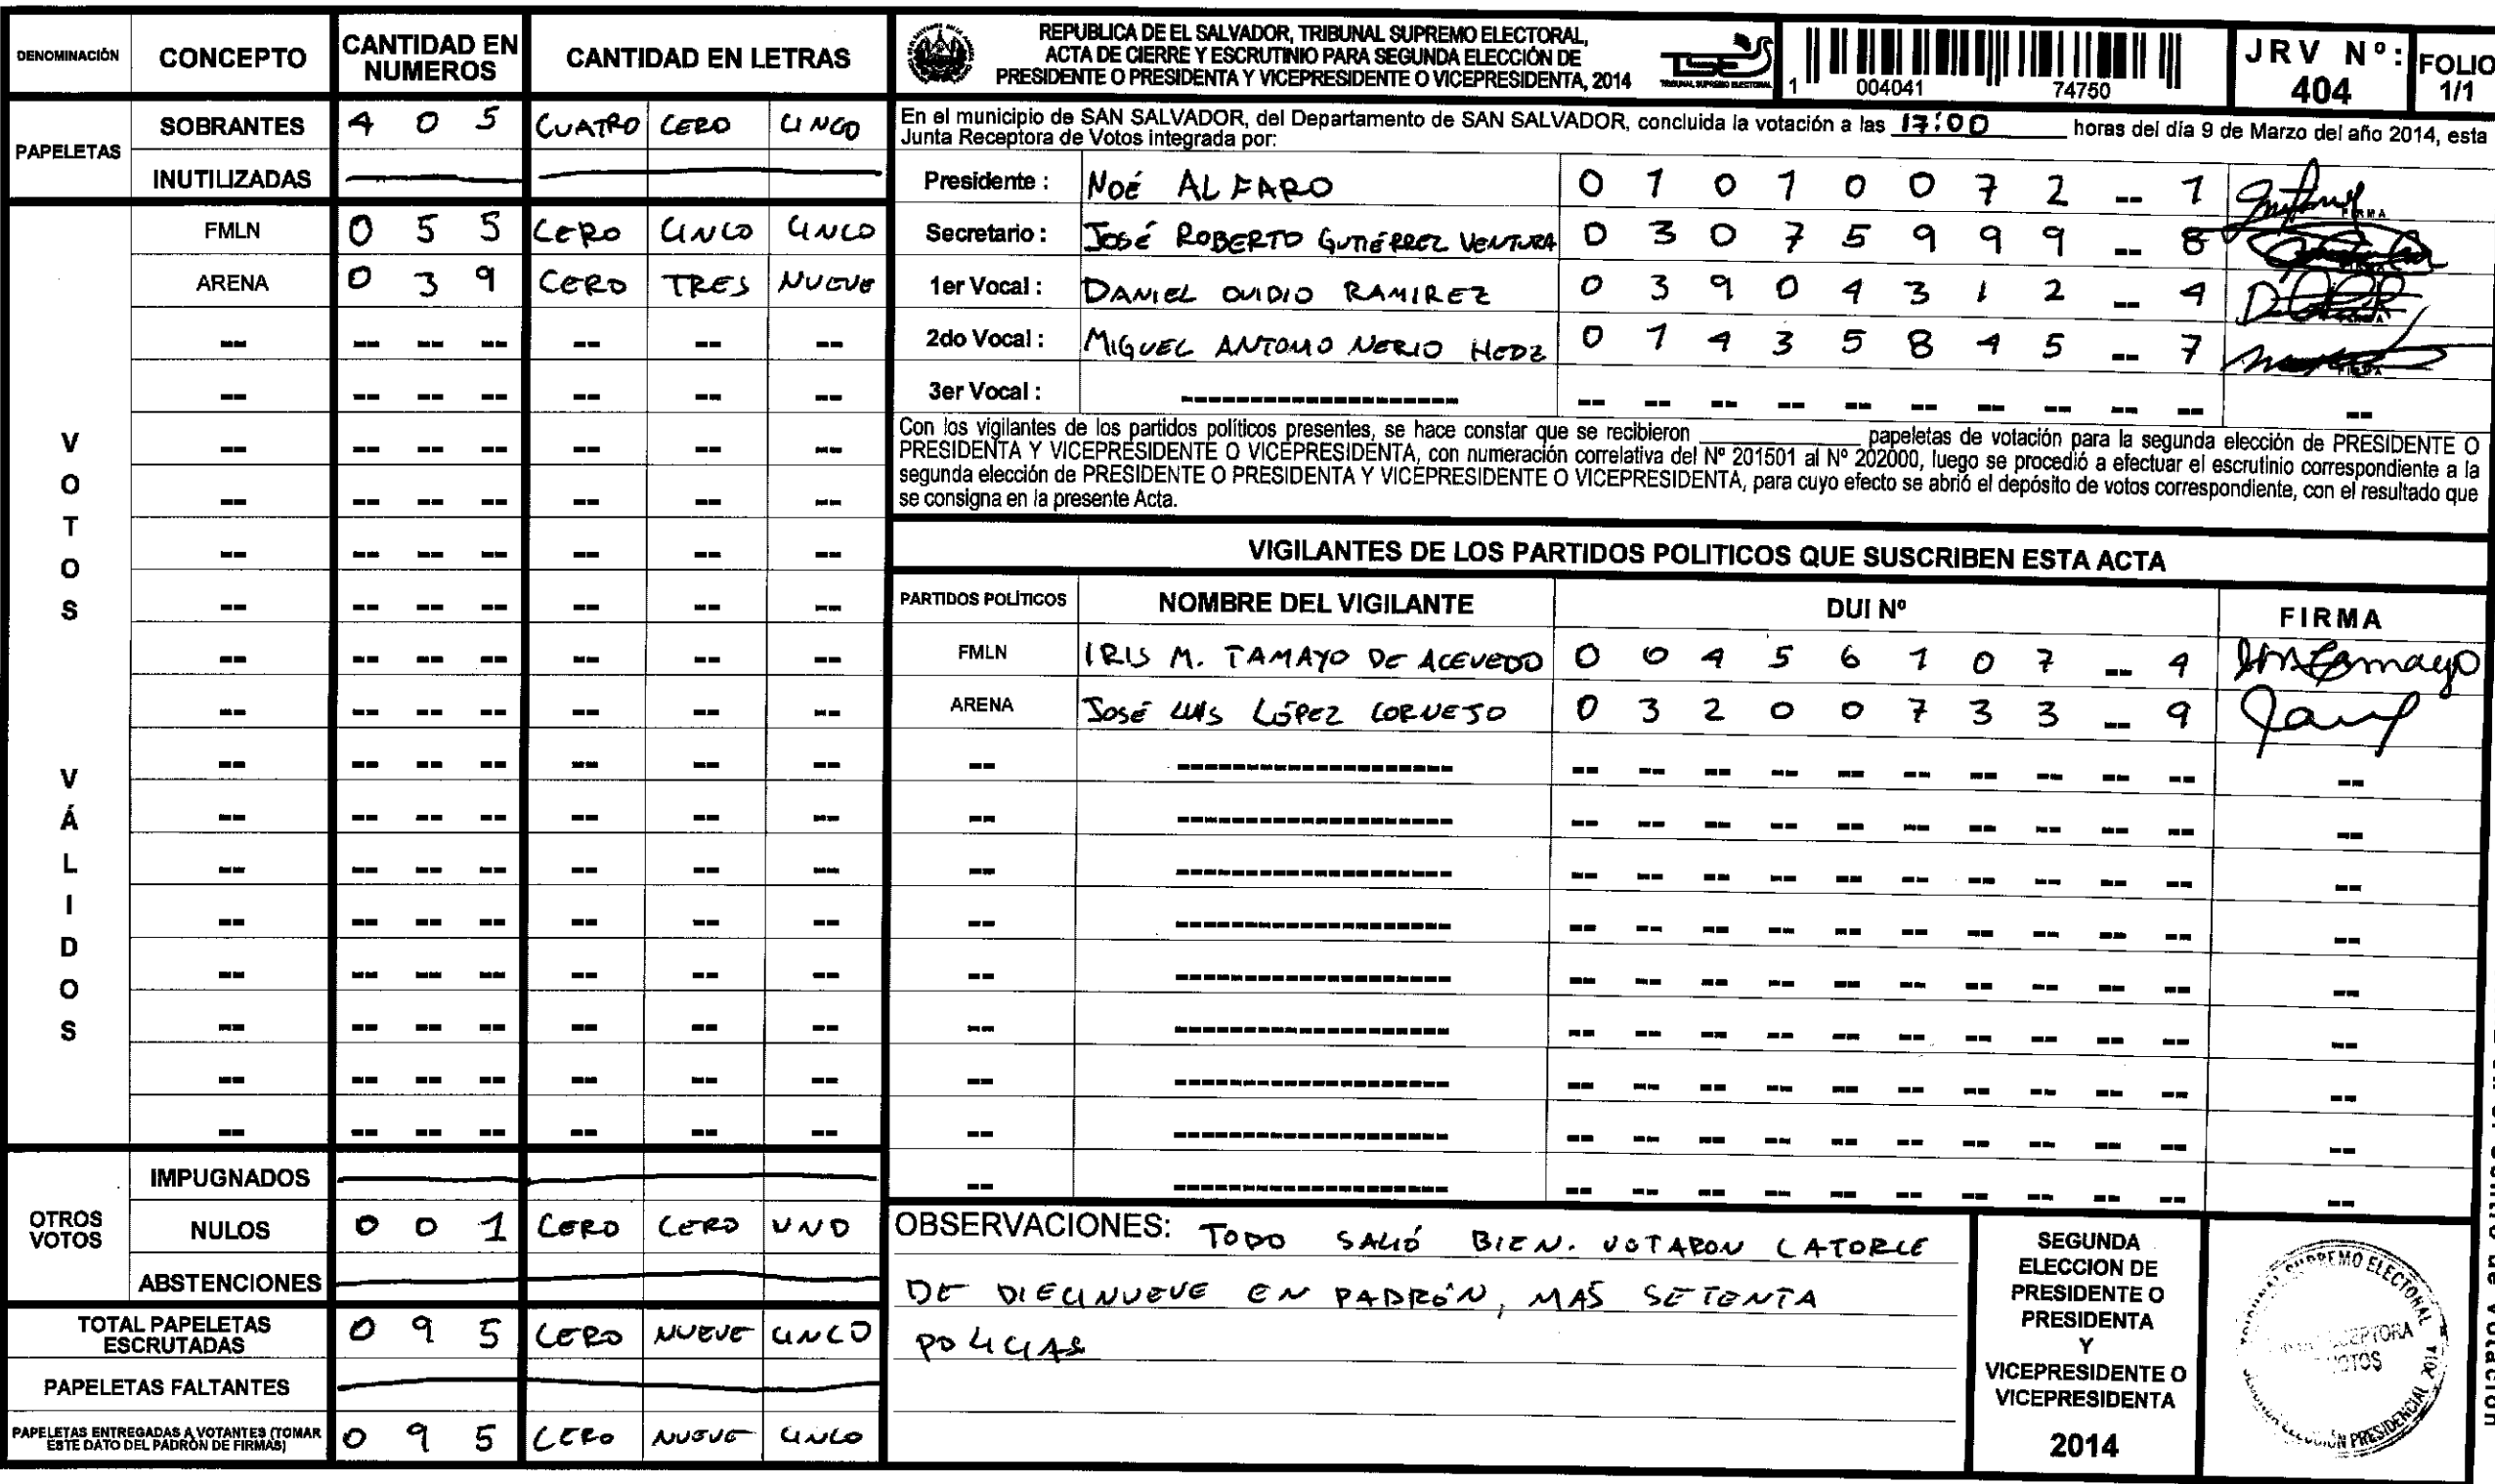 DENOMINACIÓN CONCEPTO CANTIDAD EN NUMEROS CANTIDAD EN LETRAS
PAPELETAS
SOBRANTES 4 0 5 CUATRO CERO CINCO
INUTILIZADAS
VOTOS VÁLIDOS
FMLN 0 5 5 CERO CINCO CINCO
ARENA 0 3 9 CERO TRES NUEVE
OTROS VOTOS
IMPUGNADOS
NULOS 0 0 1 CERO CERO UNO
ABSTENCIONES
TOTAL PAPELETAS ESCRUTADAS 0 9 5 CERO NUEVE CINCO
PAPELETAS FALTANTES
PAPELETAS ENTREGADAS A VOTANTES (TOMAR ESTE DATO DEL PADRÓN DE FIRMAS) 0 9 5 CERO NUEVE CINCO
REPUBLICA DE EL SALVADOR, TRIBUNAL SUPREMO ELECTORAL,
ACTA DE CIERRE Y ESCRUTINIO PARA SEGUNDA ELECCIÓN DE
PRESIDENTE O PRESIDENTA Y VICEPRESIDENTE O VICEPRESIDENTA, 2014
TSE
TRIBUNAL SUPREMO ELECTORAL
1 004041 74750
JRV Nº: 404
FOLIO 1/1
En el municipio de SAN SALVADOR, del Departamento de SAN SALVADOR, concluida la votación a las 17:00 horas del día 9 de Marzo del año 2014, esta
Junta Receptora de Votos integrada por:
Presidente : NOÉ ALFARO 0 1 0 1 0 0 7 2 -- 1
Secretario : JOSÉ ROBERTO GUTIÉRREZ VENTURA 0 3 0 7 5 9 9 9 -- 8
1er Vocal : DANIEL OVIDIO RAMIREZ 0 3 9 0 4 3 1 2 -- 4
2do Vocal : MIGUEL ANTONIO NERIO HEDZ 0 1 4 3 5 8 4 5 -- 7
3er Vocal :
FIRMA
Con los vigilantes de los partidos políticos presentes, se hace constar que se recibieron ____________ papeletas de votación para la segunda elección de PRESIDENTE O
PRESIDENTA Y VICEPRESIDENTE O VICEPRESIDENTA, con numeración correlativa del Nº 201501 al Nº 202000, luego se procedió a efectuar el escrutinio correspondiente a la
segunda elección de PRESIDENTE O PRESIDENTA Y VICEPRESIDENTE O VICEPRESIDENTA, para cuyo efecto se abrió el depósito de votos correspondiente, con el resultado que
se consigna en la presente Acta.
VIGILANTES DE LOS PARTIDOS POLITICOS QUE SUSCRIBEN ESTA ACTA
PARTIDOS POLÍTICOS NOMBRE DEL VIGILANTE DUI Nº FIRMA
FMLN IRIS M. TAMAYO DE ACEVEDO 0 0 4 5 6 1 0 7 -- 4
ARENA JOSÉ LUIS LÓPEZ CORNEJO 0 3 2 0 0 7 3 3 -- 9
OBSERVACIONES: TODO SALIÓ BIEN. VOTARON CATORCE
DE DIECINUEVE EN PADRÓN, MAS SETENTA
POLICIAS
SEGUNDA
ELECCION DE
PRESIDENTE O
PRESIDENTA
Y
VICEPRESIDENTE O
VICEPRESIDENTA
2014
TRIBUNAL SUPREMO ELECTORAL
ELECCIÓN PRESIDENCIAL 2014
VOTOS
centro de votación